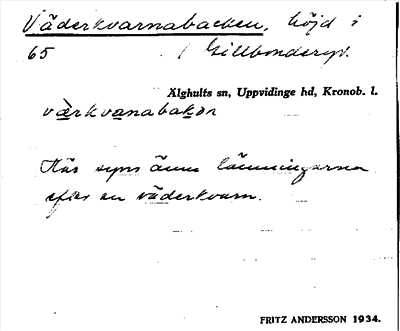 Väderkvarnabacken, höjd i
65 / Gillbonderyd.
Älghults sn, Uppvidinge hd, Kronob. l.
værkvanabakən
Här syns ännu lämningarna
efter en väderkvarn.
FRITZ ANDERSSON 1934.